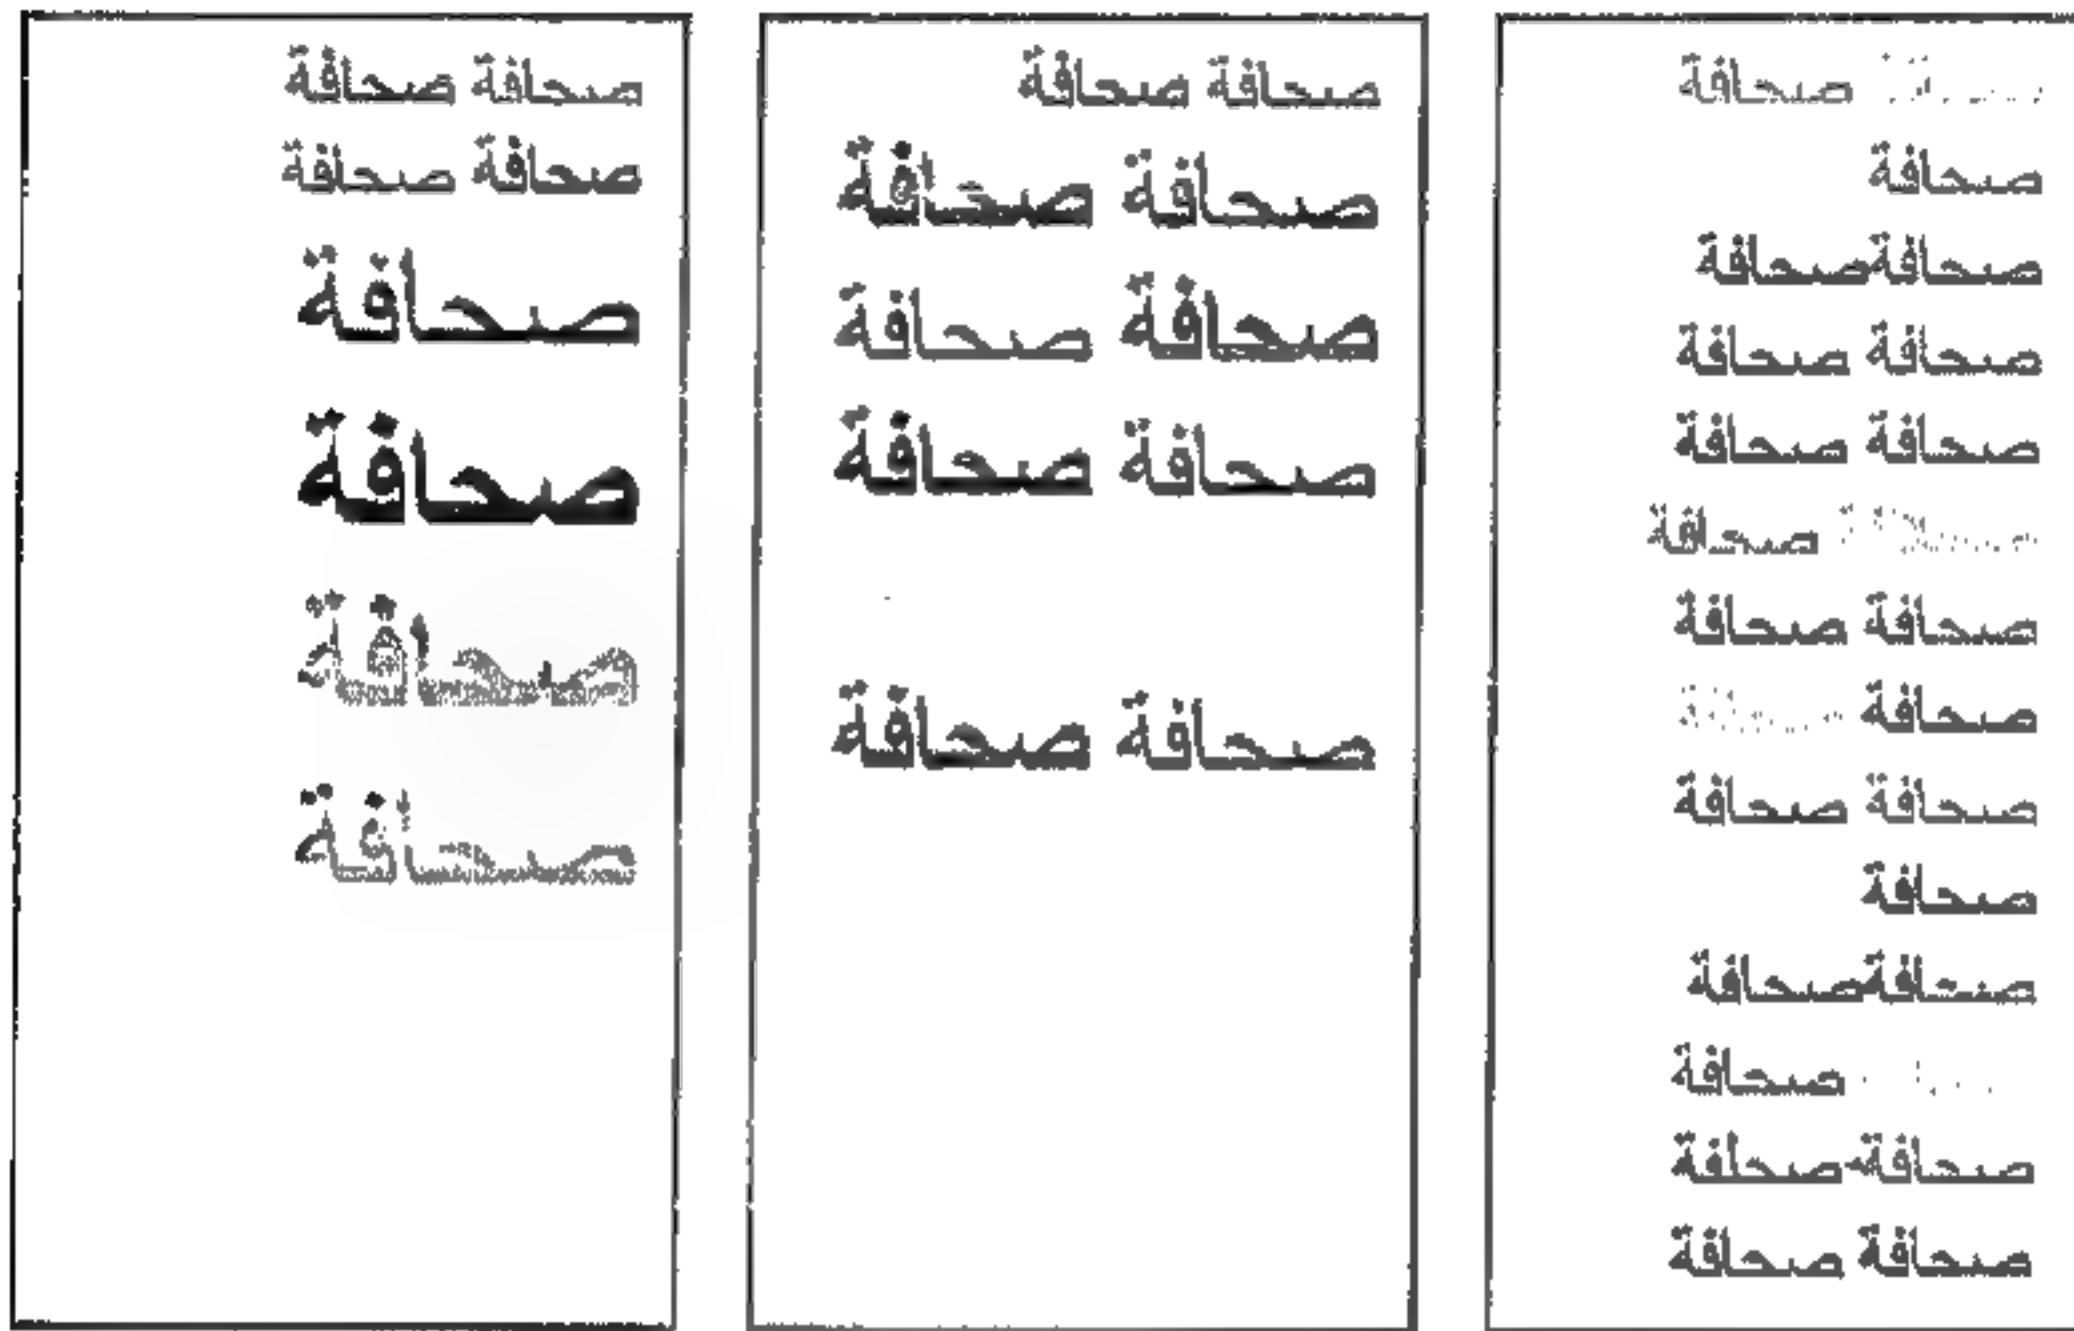 صحافة
صحافة
صحافةصحافة
صحافة صحافة
صحافة صحافة
صحافة
صحافة صحافة
صحافة
صحافة صحافة
صحافة
صحافةصحافة
صحافة
صحافة-صحافة
صحافة صحافة
صحافة صحافة
صحافة صحافة
صحافة صحافة
صحافة صحافة
صحافة صحافة
صحافة صحافة
صحافة صحافة
صحافة
صحافة
صحافة
صحافة